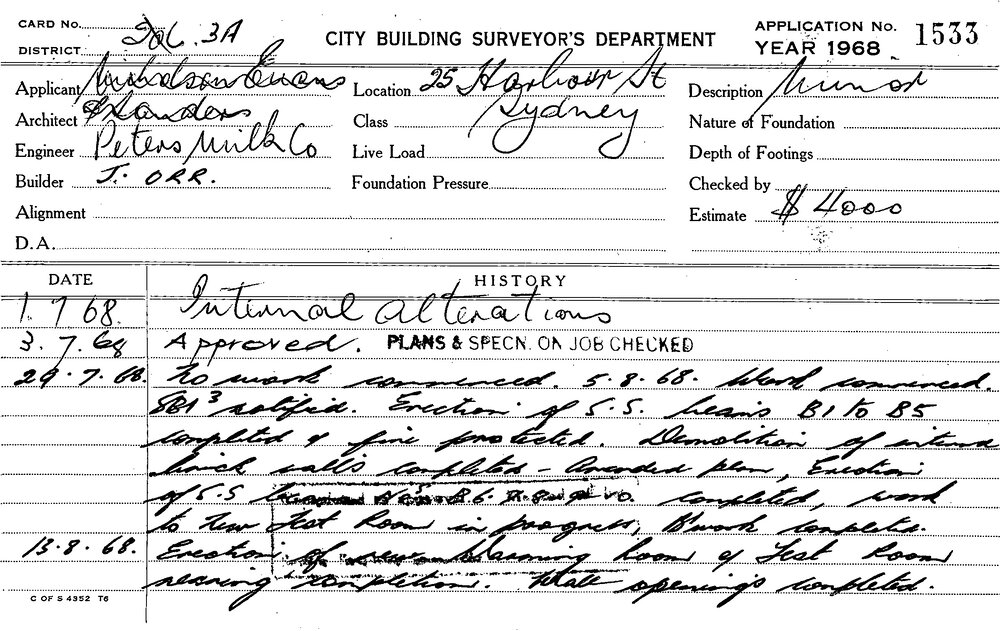 CARD No.
DISTRICT 3A
CITY BUILDING SURVEYOR'S DEPARTMENT
APPLICATION No. 1533
YEAR 1968
Applicant Nicholson Evans
Architect & Sanders
Engineer Peters Milk Co
Builder J. ORR.
Alignment
D.A.
Location 25 Harbour St
Sydney
Class
Live Load
Foundation Pressure
Description Minor
Nature of Foundation
Depth of Footings
Checked by
Estimate $ 4000
DATE HISTORY
1. 7 68. Internal alterations
3. 7. 68 Approved. PLANS & SPECN. ON JOB CHECKED
29. 7. 68. No work commenced. 5.8.68. Work commenced.
notified. Erection of S.S. beams B1 to B5
completed & fire protected. Demolition of internal
brick walls completed - Amended plan, Erection
of S.S B6. completed, work
to new Test Room in progress, B'work completed.
13.8.68. Erection of new Room & Test Room
nearing completion. Wall openings completed.
C OF S 4352 T6